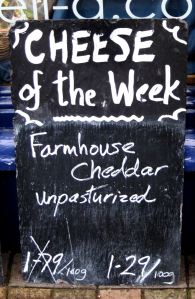 CHEESE
of the Week
Farmhouse
Cheddar
unpasturized
1-79/100g 1-29/100g